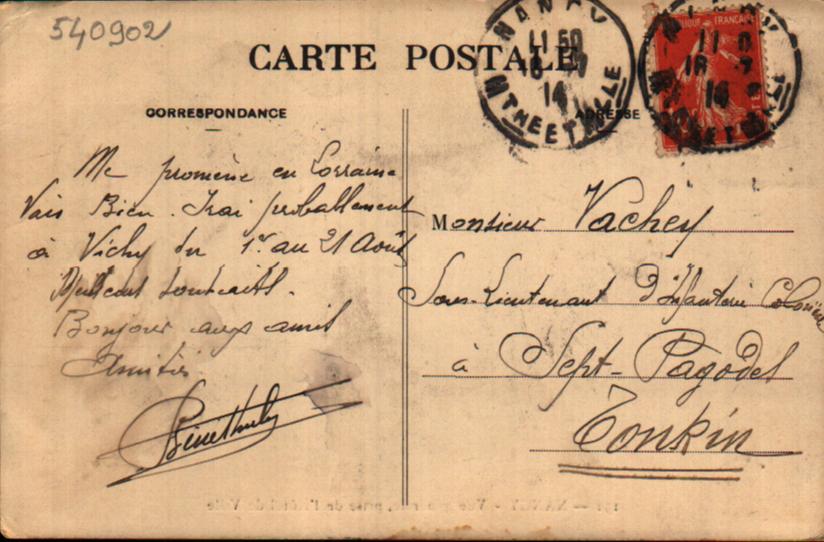 540902
CARTE POSTALE
CORRESPONDANCE
ADRESSE
NANCY
11 50
16 - 7
14
MTHE ET MLLE
FRANÇAISE
11
16 - 7
14
Me promène en Lorraine
Vais Bien. Irai probablement
à Vichy du 1er au 21 Août
souhaits.
Bonjour aux amis
Amitiés
Monsieur Vachey
Sous-Lieutenant D'Infanterie Coloniale
à Sept-Pagodes
Tonkin
NANCY - Vue prise de l'Hôtel de Ville